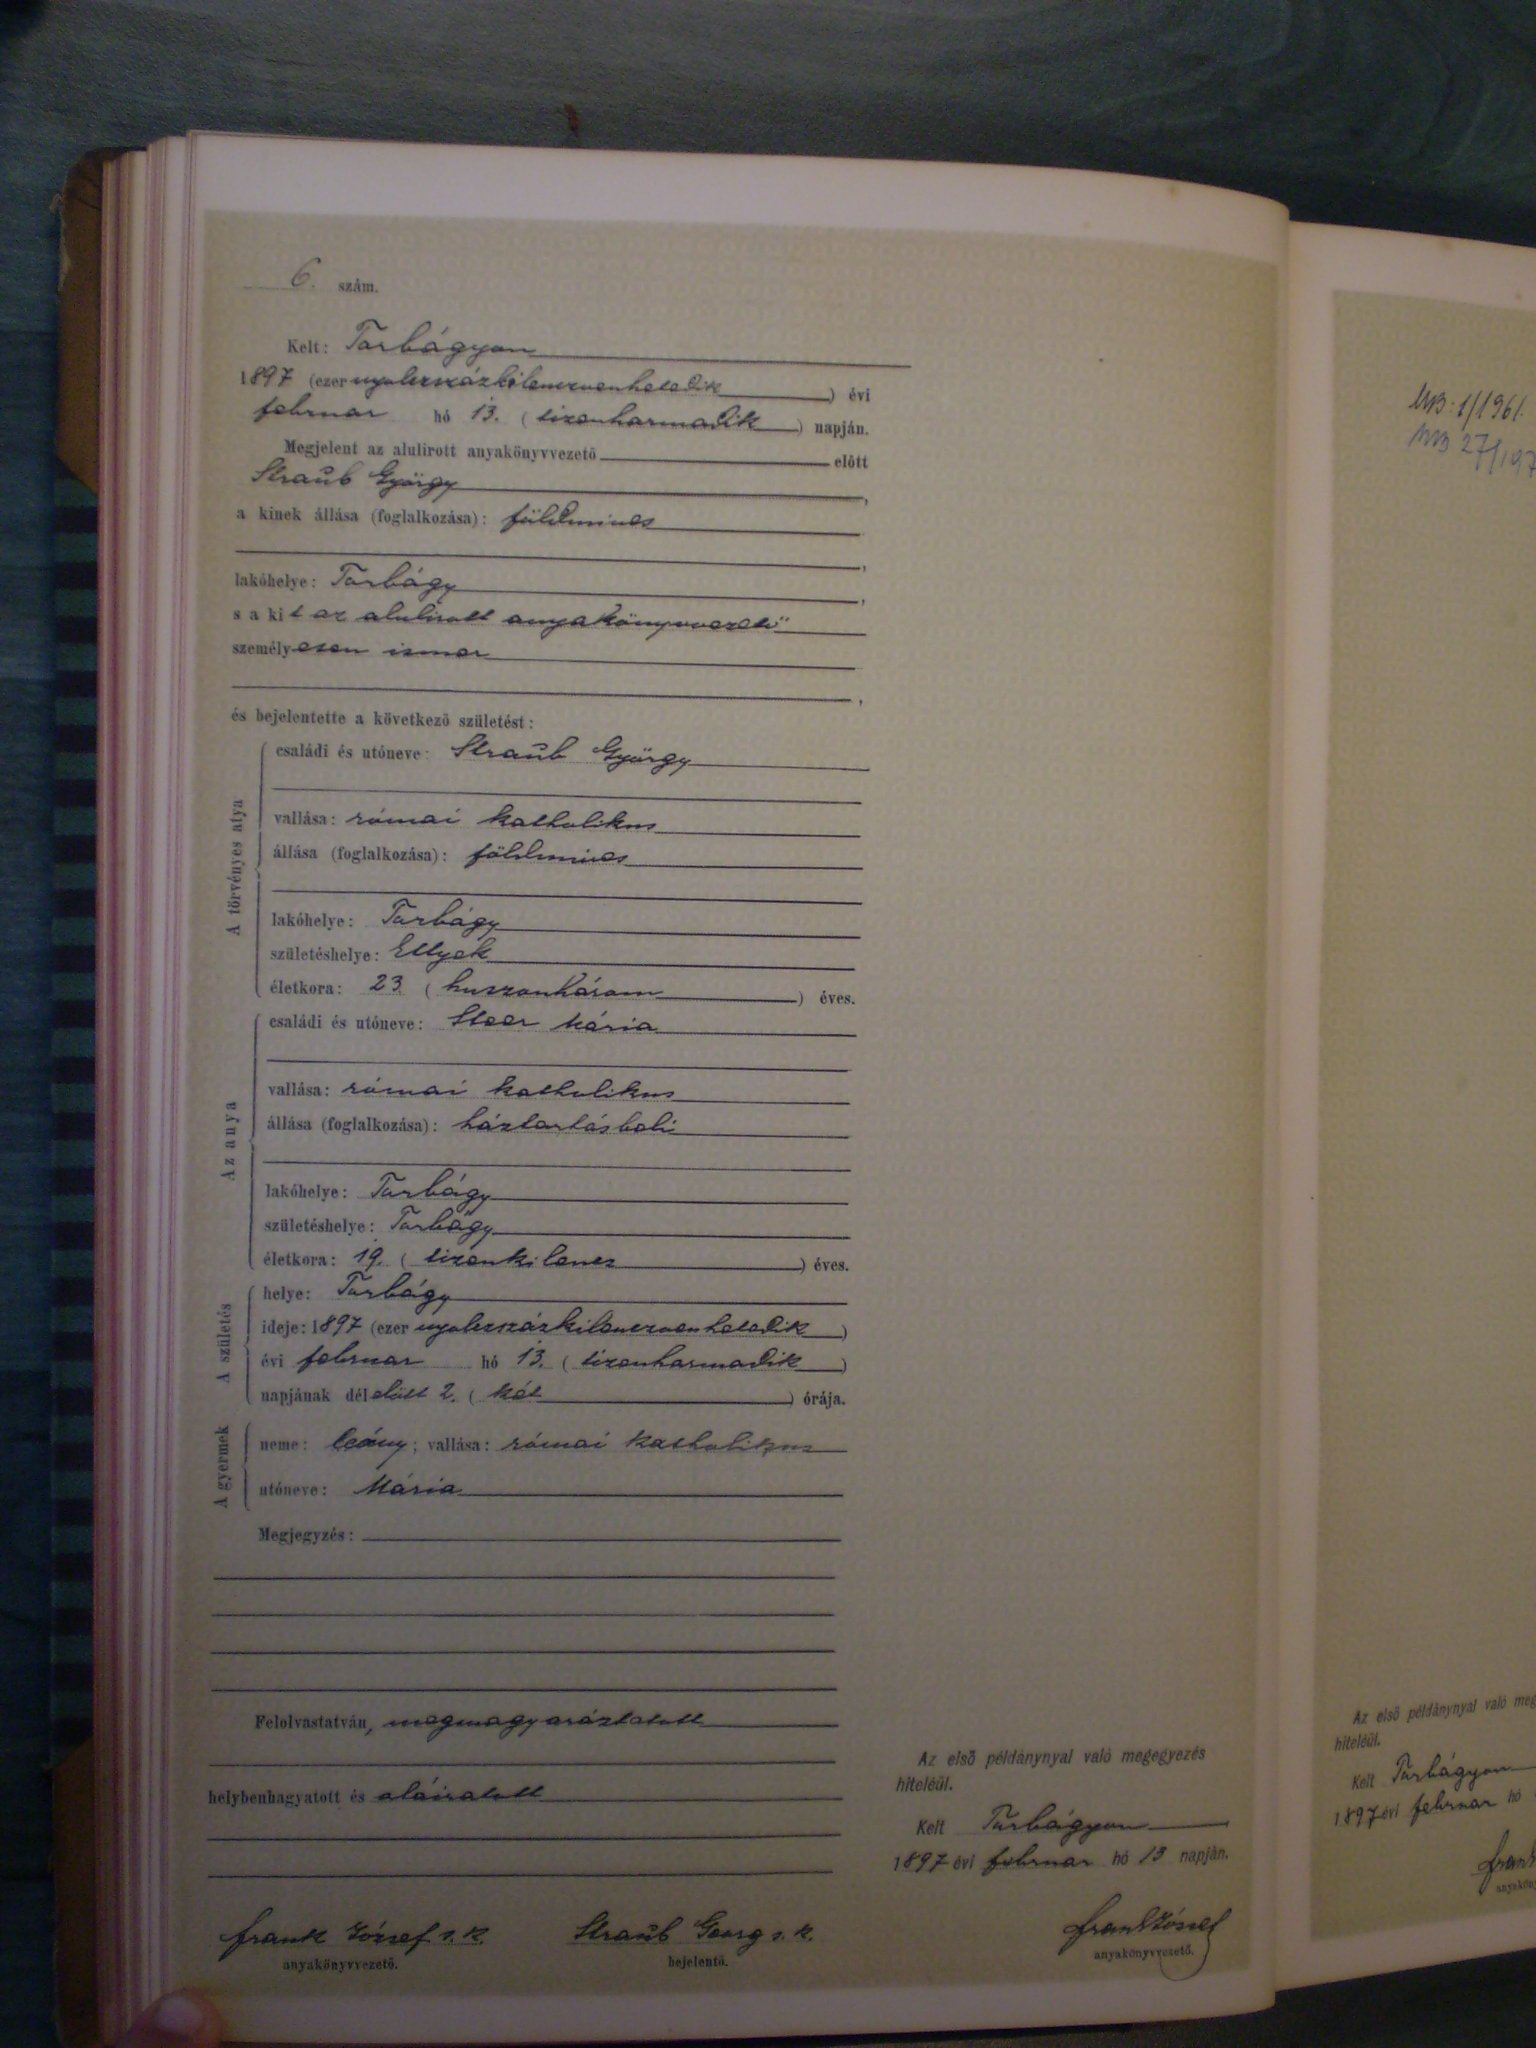 6. szám.
Kelt: Torbágyon
1897 (ezer nyolczszázkilenczvenhetedik) évi
februar hó 13. (tizenharmadik) napján.
Megjelent az alulirott anyakönyvvezető előtt
Straub György,
a kinek állása (foglalkozása): földmives
,
lakóhelye: Torbágy,
s a kit az alulirott anyakönyvvezető
személyesen ismer
,
és bejelentette a következő születést:
A törvényes atya
családi és utóneve: Straub György
vallása: római katholikus
állása (foglalkozása): földmives
lakóhelye: Torbágy
születéshelye: Ettyek
életkora: 23 (huszonhárom) éves.
Az anya
családi és utóneve: Steer Mária
vallása: római katholikus
állása (foglalkozása): háztartásbeli
lakóhelye: Torbágy
születéshelye: Torbágy
életkora: 19. (tizenkilencz) éves.
A születés
helye: Torbágy
ideje: 1897 (ezer nyolczszázkilenczvenhetedik)
évi februar hó 13. (tizenharmadik)
napjának délelött 2. (két) órája.
A gyermek
neme: leány; vallása: római katholikus
utóneve: Mária
Megjegyzés:
Felolvastatván, megmagyaráztatott
helybenhagyatott és aláiratott
frank József s. k.
anyakönyvvezető.
Straub Georg s. k.
bejelentő.
Az első példánynyal való megegyezés
hiteléül.
Kelt Torbágyon
1897 évi februar hó 13 napján.
frank József
anyakönyvvezető.
1/1961.
27/197
Az első példánynyal való meg
hiteléül.
Kelt Torbágyon
1897 évi februar hó
frank
anyaköny